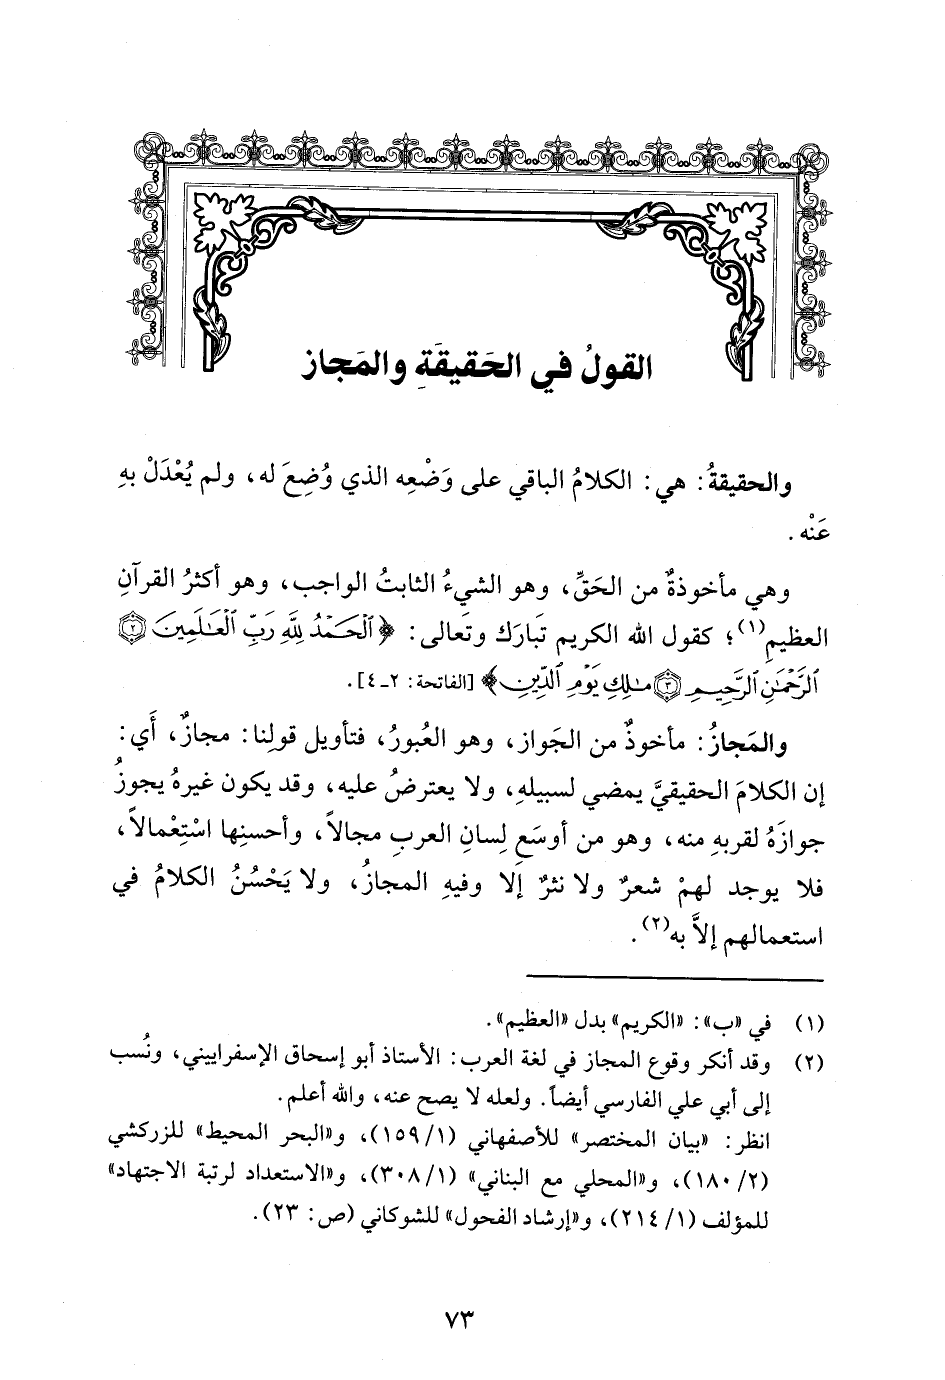 القولُ في الحَقيقَةِ والمَجاز
والحقيقةُ: هي: الكلامُ الباقي على وَضْعِه الذي وُضِعَ له، ولم يُعْدَلْ بهِ
عَنْه.
وهي مأخوذةٌ من الحَقِّ، وهو الشيءُ الثابتُ الواجب، وهو أكثرُ القرآنِ
العظيمِ(١)؛ كقول الله الكريم تَبارَك وتَعالى: ﴿ٱلْحَمْدُ لِلَّهِ رَبِّ ٱلْعَـٰلَمِينَ ۝٢
ٱلرَّحْمَـٰنِ ٱلرَّحِيمِ ۝٣ مَـٰلِكِ يَوْمِ ٱلدِّينِ﴾ [الفاتحة: ٢-٤].
والمَجازُ: مأخوذٌ من الجَواز، وهو العُبورُ، فتأويل قولِنا: مجازٌ، أَي:
إن الكلامَ الحقيقيَّ يمضي لسبيلهِ، ولا يعترضُ عليه، وقد يكون غيرهُ يجوزُ
جوازَهُ لقربهِ منه، وهو من أوسَعِ لِسانِ العربِ مجالاً، وأحسنِها اسْتِعْمالاً،
فلا يوجد لهمْ شعرٌ ولا نثرٌ إلا وفيهِ المجازُ، ولا يَحْسُنُ الكلامُ في
استعمالهم إلاَّ به(٢).
(١) في «ب»: «الكريم» بدل «العظيم».
(٢) وقد أنكر وقوع المجاز في لغة العرب: الأستاذ أبو إسحاق الإسفراييني، ونُسب
إلى أبي علي الفارسي أيضاً. ولعله لا يصح عنه، والله أعلم.
انظر: «بيان المختصر» للأصفهاني (١/ ١٥٩)، و«البحر المحيط» للزركشي
(٢/ ١٨٠)، و«المحلي مع البناني» (١/ ٣٠٨)، و«الاستعداد لرتبة الاجتهاد»
للمؤلف (١/ ٢١٤)، و«إرشاد الفحول» للشوكاني (ص: ٢٣).
٧٣